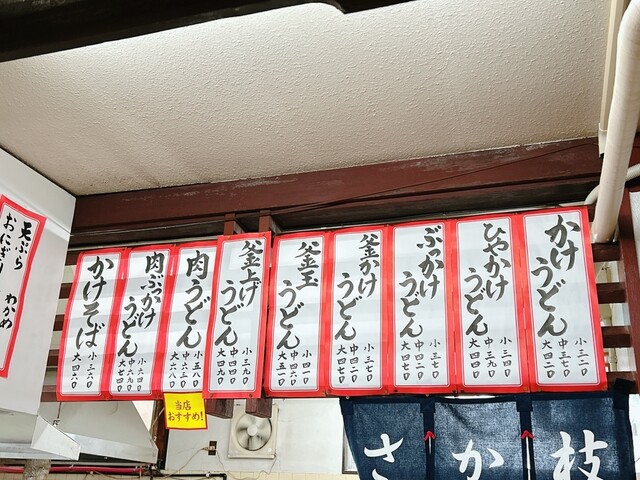 かけ
うどん
小三一〇
中三七〇
大四二〇
ひやかけ
うどん
小三四〇
中三九〇
大四四〇
ぶっかけ
うどん
小三七〇
中四二〇
大四七〇
釜かけ
うどん
小三七〇
中四二〇
大四七〇
釜玉
うどん
小四一〇
中四六〇
大五一〇
釜上げ
うどん
小三九〇
中四四〇
大四九〇
肉うどん
大六八〇
肉ぶっかけ
うどん
小六四〇
中六九〇
大七四〇
かけそば
小三六〇
大四六〇
天ぷら
おにぎり わかめ
当店
おすすめ!
さか枝